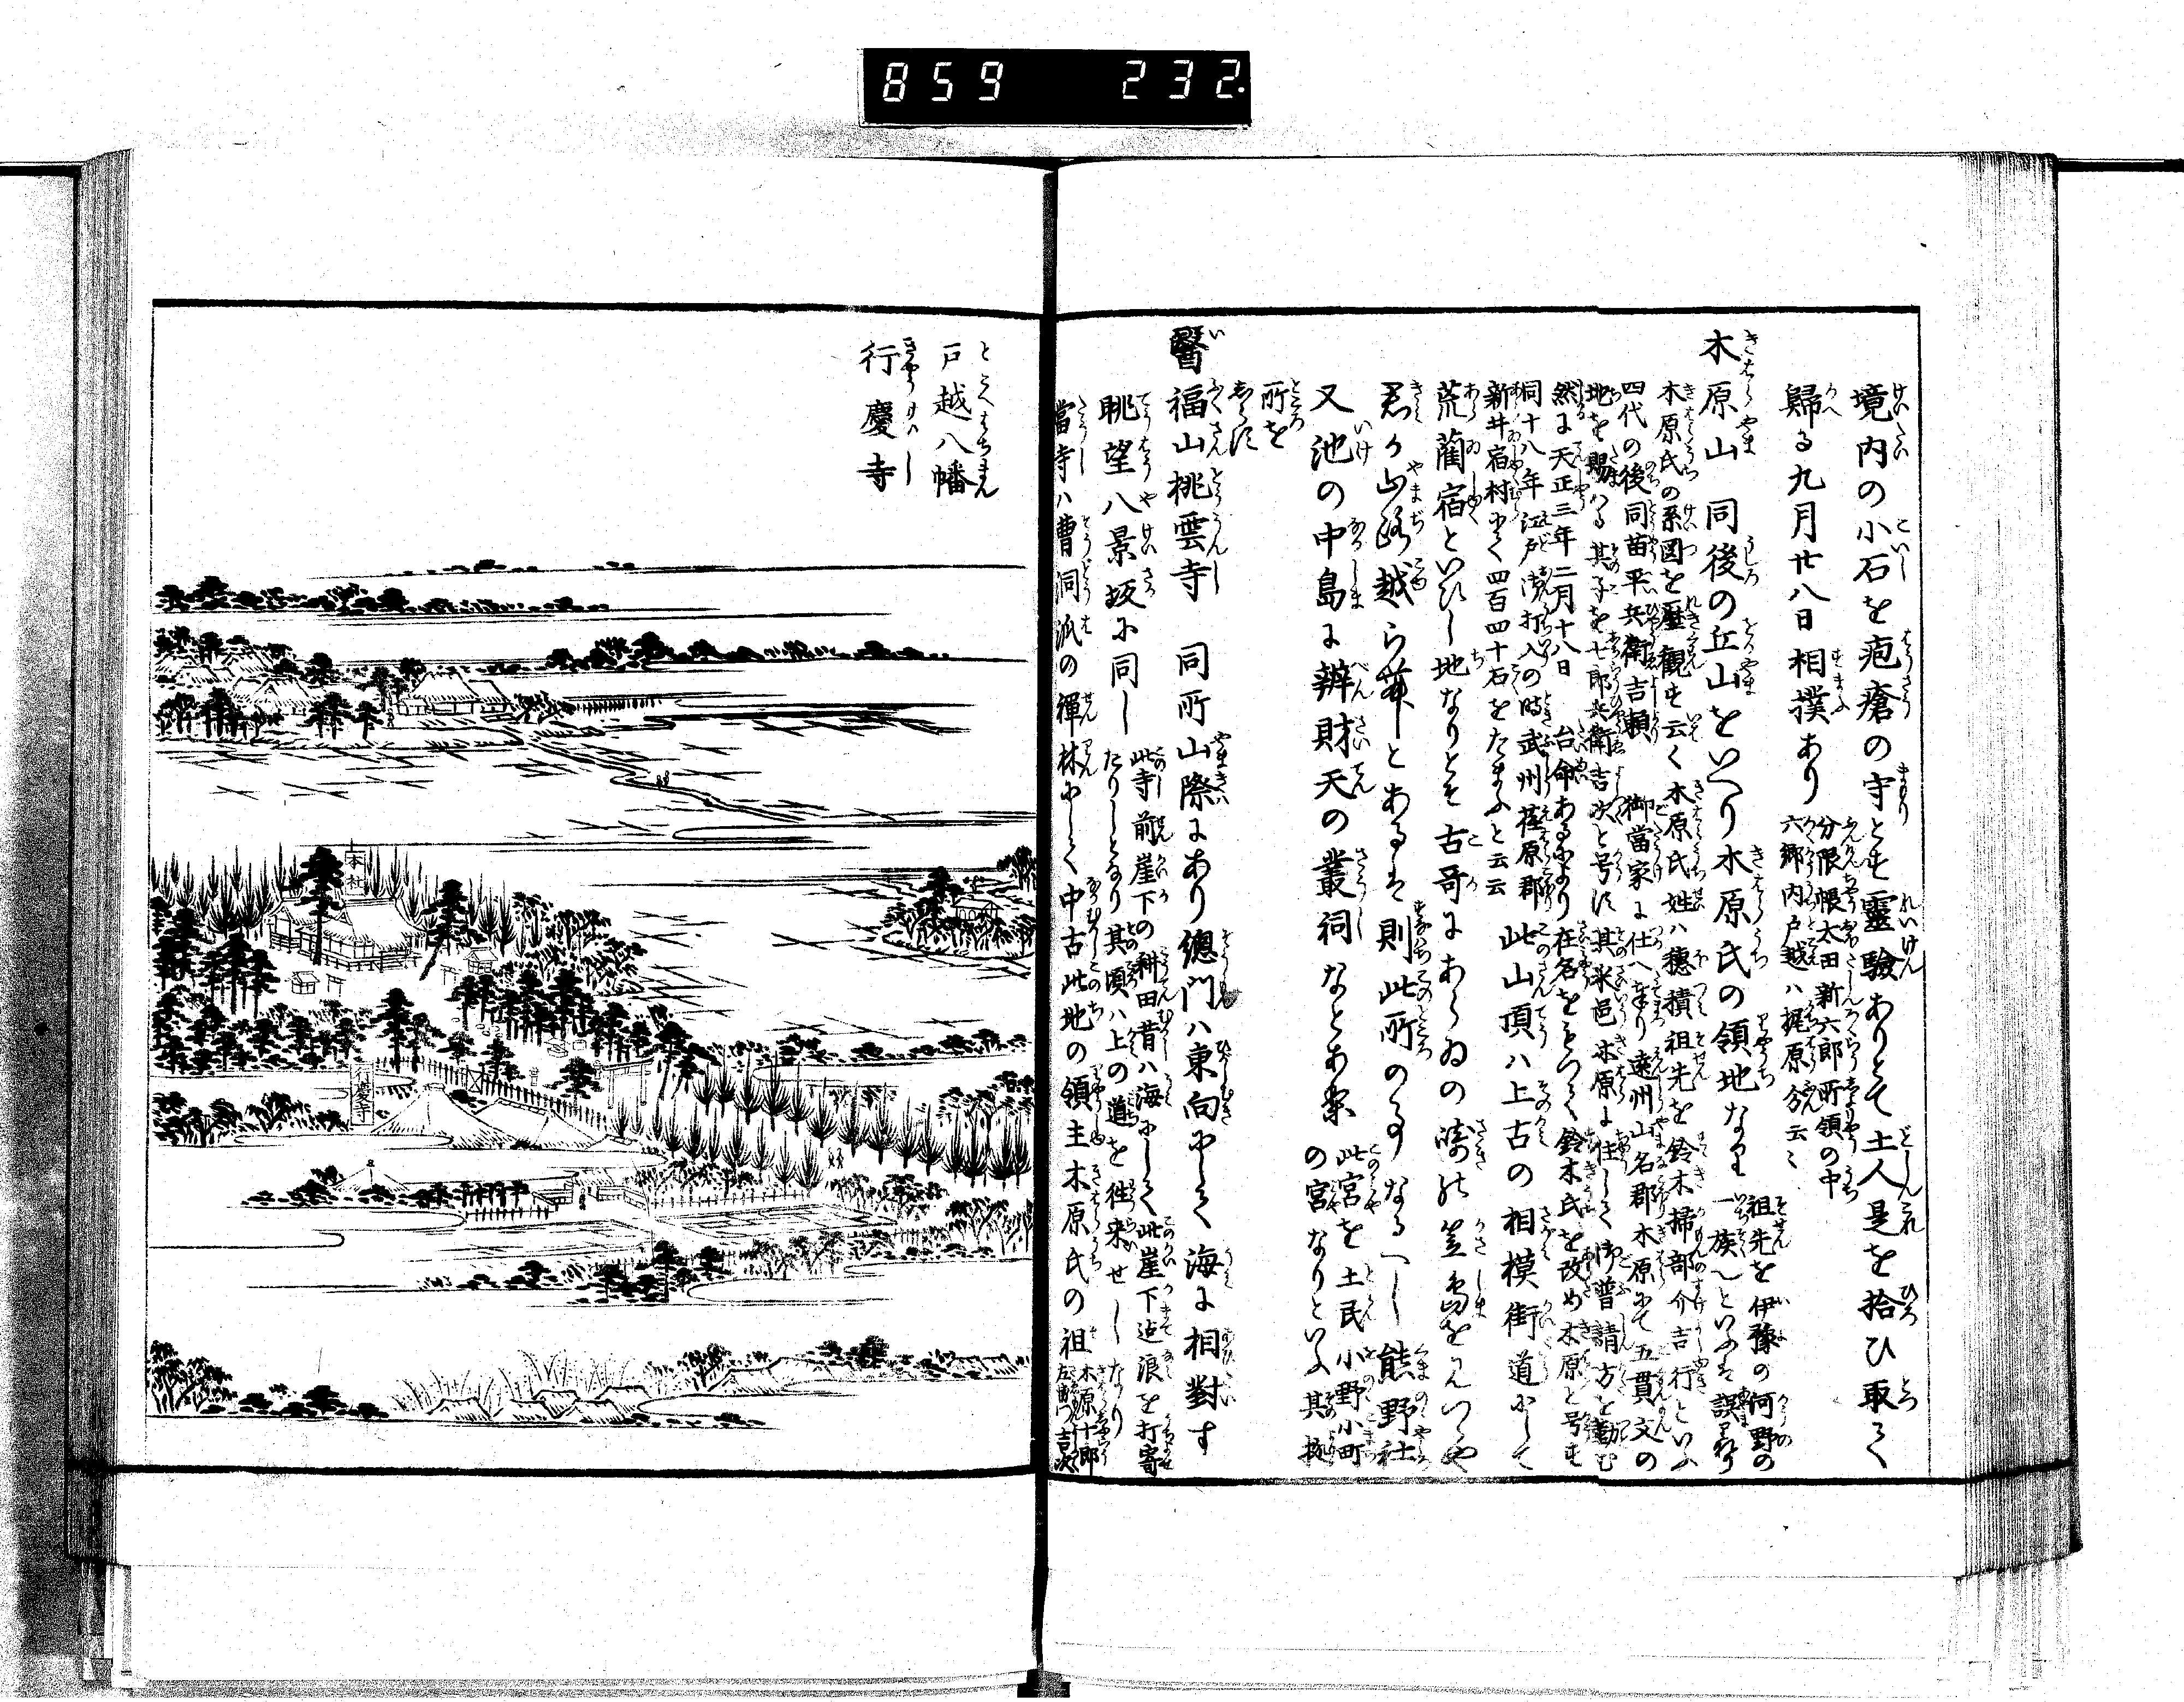 859 232.
境内の小石を疱瘡の守とす霊験ありとて土人是を拾ひ取て
帰る九月廿八日相撲あり
分限帳太田新六郎所領の中
六郷内戸越ハ梶原分云々
木原山 同後の丘山をいへり木原氏の領地なり
祖先を伊豫の河野の
一族といふは誤なり
木原氏の系図を歴観す云く木原氏姓ハ穂積祖先を鈴木掃部介吉行といふ
四代の後同苗平兵衛吉頼 御當家に仕へ奉り遠州山名郡木原にて五貫文の
地を賜はる其子を七郎兵衛吉次と号す其采邑木原に住して御普請方を勤む
然に天正三年二月十八日 台命あるにより在名をもつて鈴木氏を改め木原と号す
同十八年江戸御打入の時武州荏原郡
新井宿村にて四百四十石をたまふと云云
此山頂ハ上古の相模街道にして
荒藺宿といひし地なりとそ古哥にあらゐの
笠島を見つゝや
君か山路越らむとあるは則此所の事なるへし熊野社
又池の中島に辨財天の叢祠なとあり
此宮を土民小野小町
の宮なりといふ其拠
所を
しらす
醫福山桃雲寺 同所山際にあり總門ハ東向にして海に相對す
眺望八景坂に同し
此寺前崖下の耕田昔ハ海にして此崖下迄浪を打寄
たりしとなり其頃ハ上の道を往来せしなり
當寺ハ曹洞派の禪林にして中古此地の領主木原氏の祖
木原十郎
左衛門吉次
戸越八幡
行慶寺
本社
行慶寺